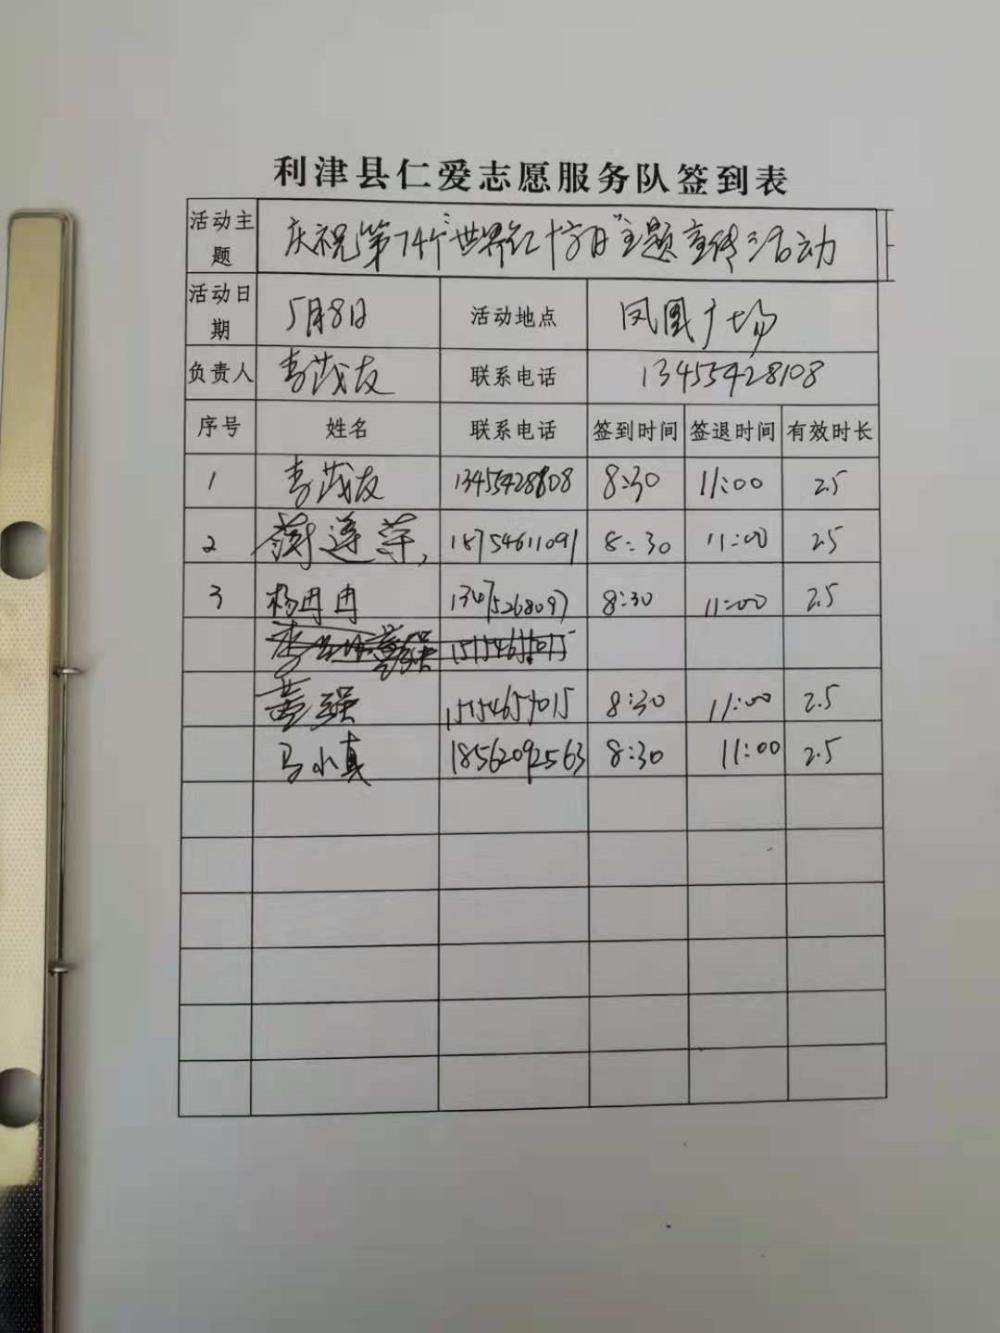 利津县仁爱志愿服务队签到表
活动主题 庆祝第74个“世界红十字日”主题宣传活动
活动日期 5月8日 活动地点 凤凰广场
负责人 李茂友 联系电话 13455428108
序号 姓名 联系电话 签到时间 签退时间 有效时长
1 李茂友 8:30 11:00 2.5
2 莲萍 18754611091 8:30 11:00 2.5
3 杨冉冉 8:30 11:00 2.5
黄强 8:30 11:00 2.5
马小真 18562092563 8:30 11:00 2.5